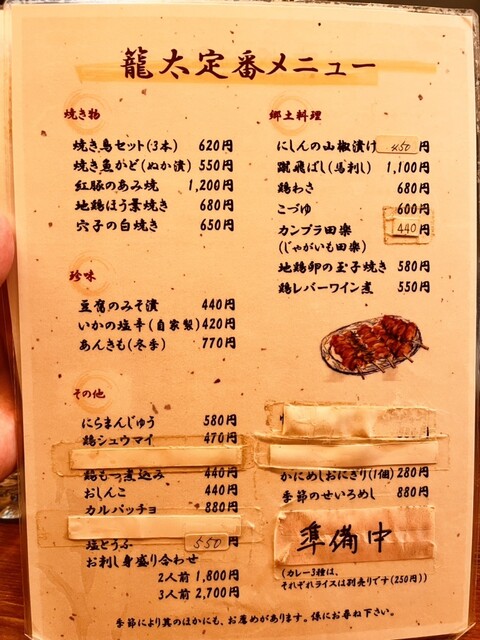 龍太定番メニュー
焼き物
焼き鳥セット(3本) 620円
焼き魚かど(ぬか漬) 550円
紅豚のあみ焼 1,200円
地鶏ほう葉焼き 680円
穴子の白焼き 650円
珍味
豆腐のみそ漬 440円
いかの塩辛(自家製) 420円
あんきも(冬季) 770円
その他
にらまんじゅう 580円
鶏シュウマイ 470円
鶏もつ煮込み 440円
おしんこ 440円
カルパッチョ 880円
塩とうふ 550円
お刺し身盛り合わせ
2人前 1,800円
3人前 2,700円
郷土料理
にしんの山椒漬け 450円
蹴飛ばし(馬刺し) 1,100円
鶏わさ 680円
こづゆ 600円
カンプラ田楽 440円
(じゃがいも田楽)
地鶏卵の玉子焼き 580円
鶏レバーワイン煮 550円
かにめしおにぎり(1個) 280円
季節のせいろめし 880円
準備中
(カレー3種は、
それぞれライスは別売りです(250円))
季節により其のほかにも、お薦めがあります。係にお尋ね下さい。